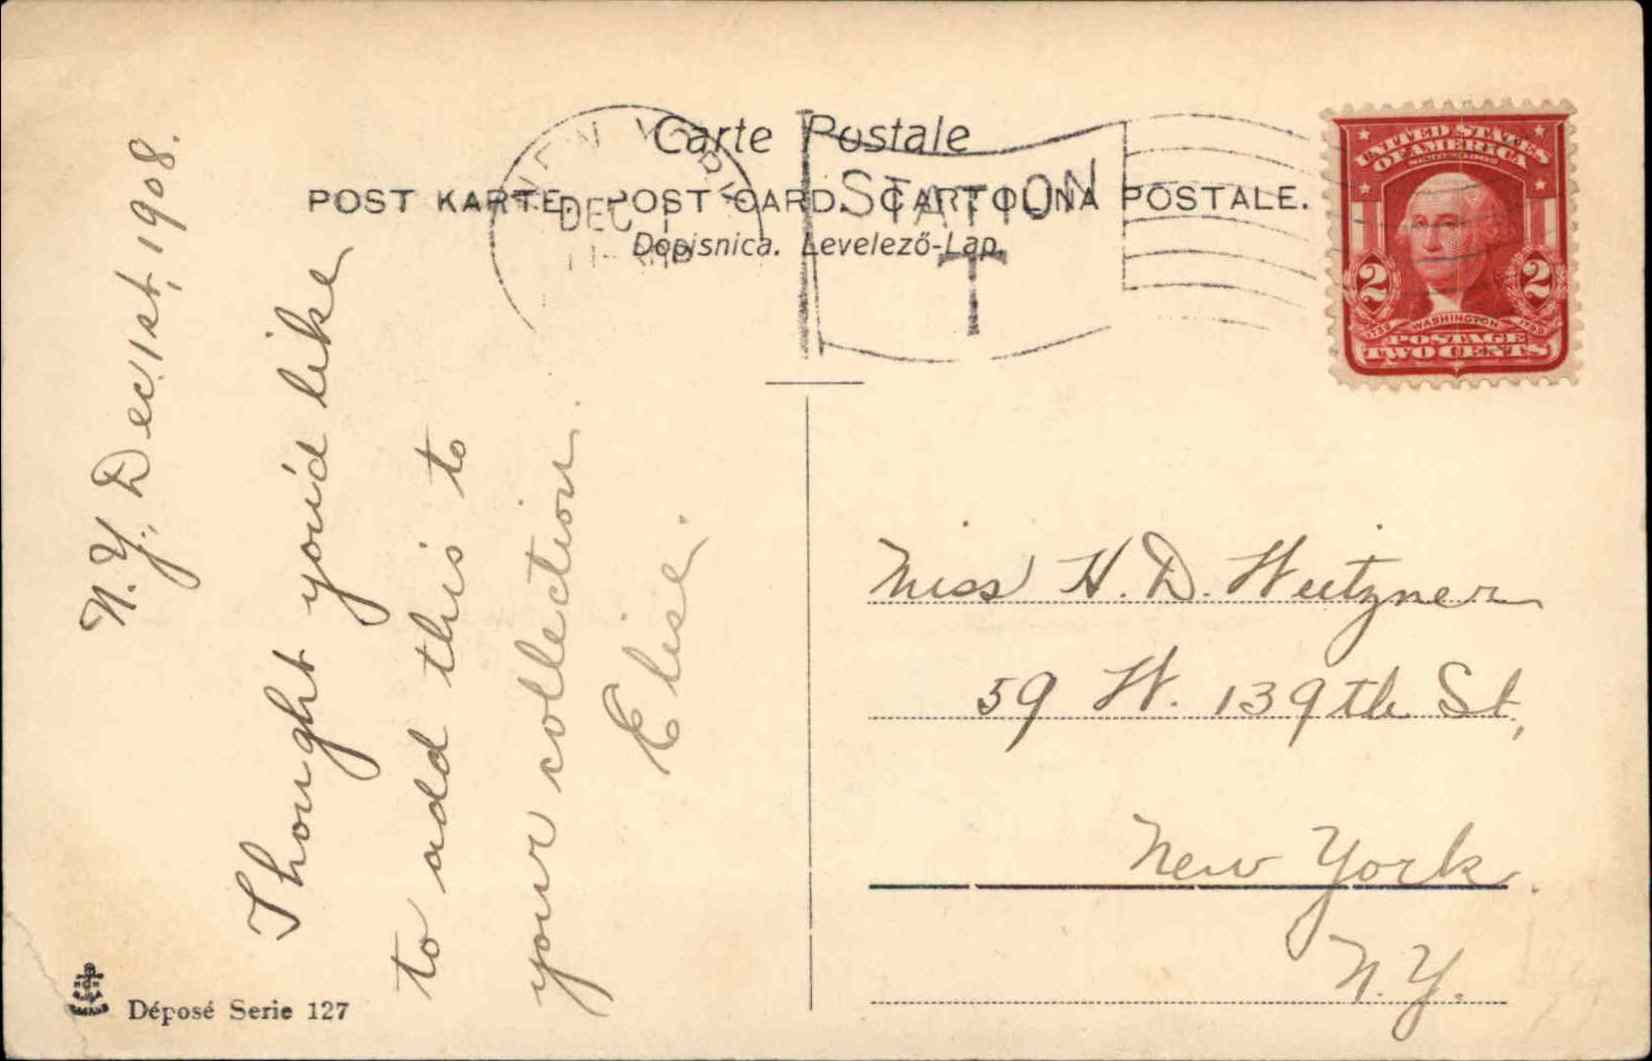 Carte Postale
POST KARTE. POST CARD. CARTOLINA POSTALE.
Dopisnica. Levelező-Lap.
NEW YORK
DEC 1
STATION
T
UNITED STATES
OF AMERICA
2 2
1732 WASHINGTON 1799
POSTAGE
TWO CENTS
N.Y., Dec. 1st, 1908.
Thought you'd like
to add this to
your collection.
Elise.
Miss H. D. Weitzner
59 W. 139th St,
New York.
N.Y.
Déposé Serie 127